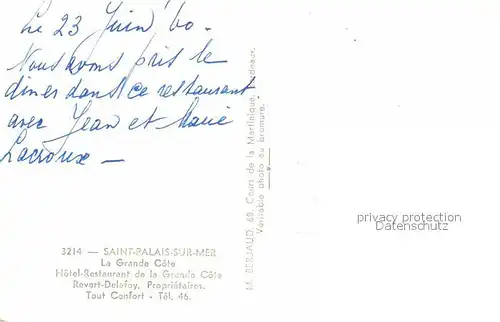 Le 23 Juin 60.
Nous avons pris le
diner dans ce restaurant
avec Jean et Marie
Lacroux —
M. BERJAUD, 68, Cours de la Martinique, Bordeaux.
Véritable photo au bromure.
privacy protection
Datenschutz
3214 — SAINT-PALAIS-SUR-MER
La Grande Côte
Hôtel-Restaurant de la Grande Côte
Revert-Delafoy, Propriétaires.
Tout Confort - Tél. 46.